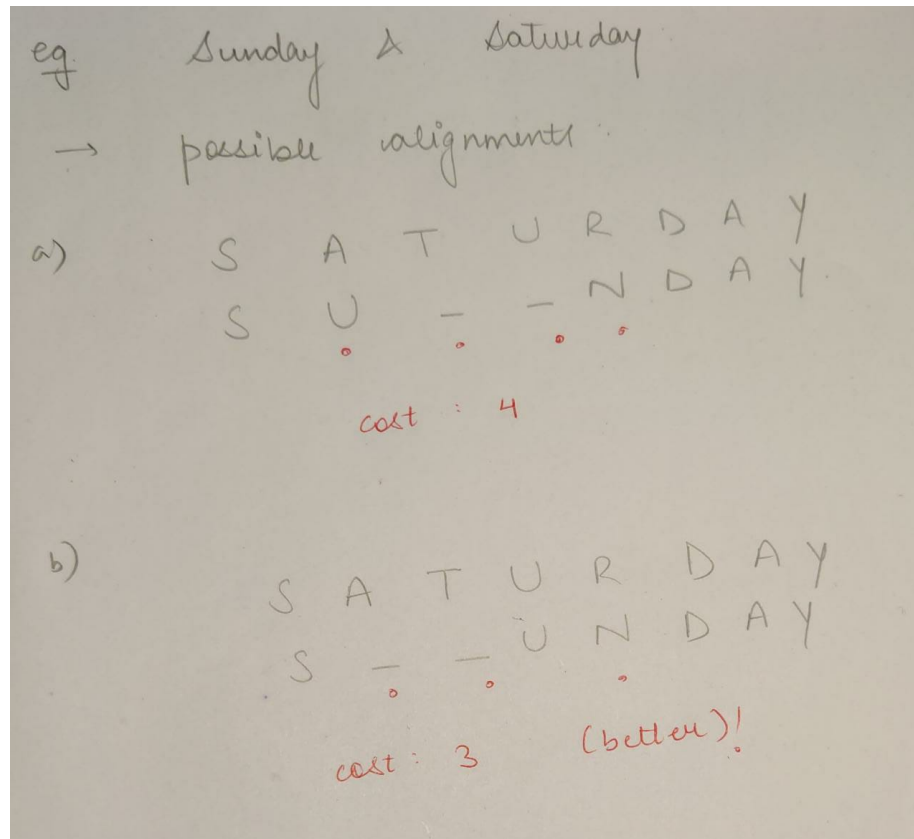 eg. Sunday & Saturday
→ possible alignments :
a) S A T U R D A Y
S U _ _ N D A Y
cost : 4
b) S A T U R D A Y
S _ _ U N D A Y
cost : 3 (better)!